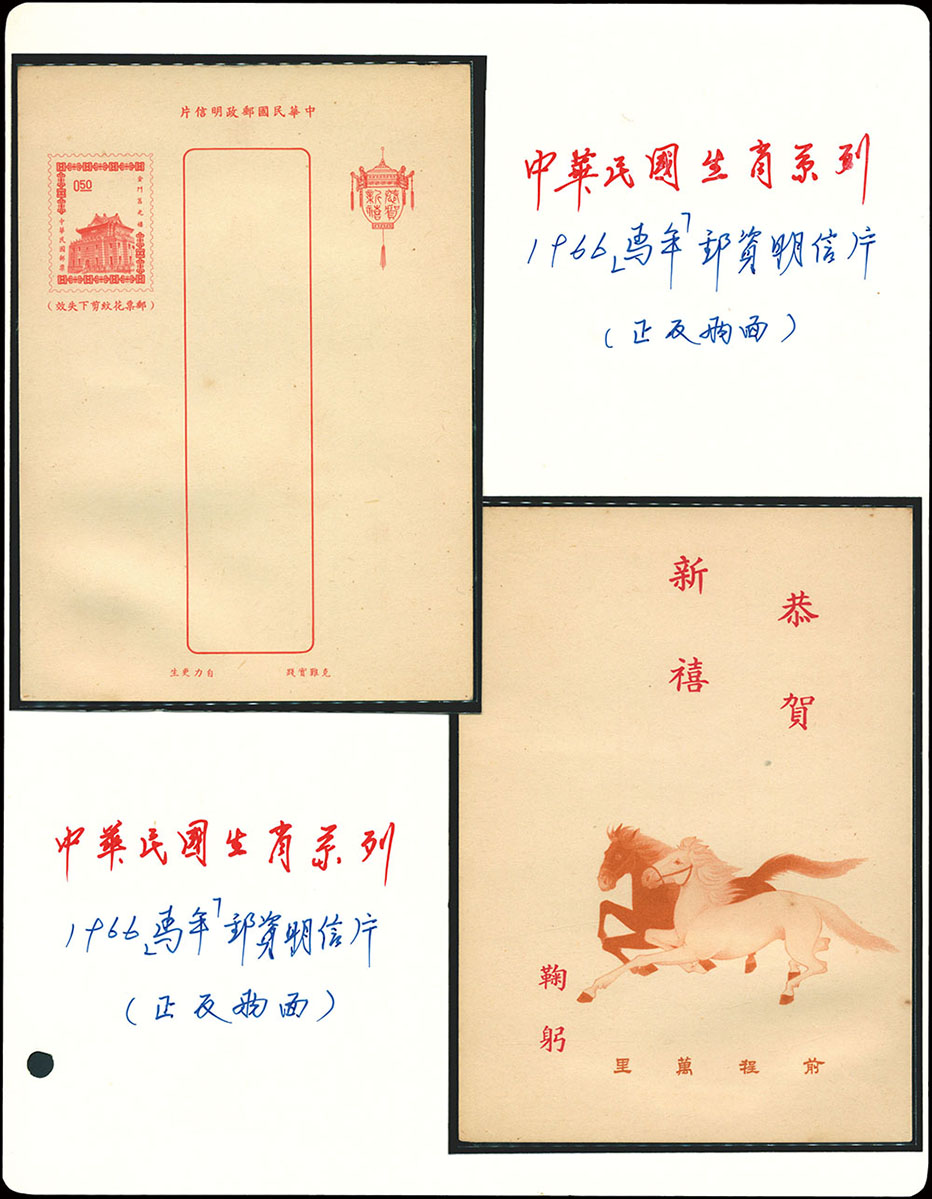 中華民國郵政明信片
050
金門莒光樓
中華民國郵票
（郵票花紋剪下失效）
恭賀
新禧
克難實踐
自力更生
中華民國生肖系列
1966「馬年」郵資明信片
(正反两面)
恭賀
新禧
鞠躬
前程萬里
中華民國生肖系列
1966「馬年」郵資明信片
(正反两面)